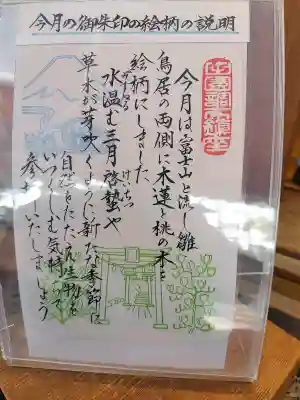 今月の御朱印の絵柄の説明
今月は富士山と流し雛
鳥居の両側に木蓮と桃の木を
絵柄にしました。
水温む三月啓蟄や
けいちつ
草木が芽吹くように新たな季節に
自然をたたえ生物を
いつくしむ気持ちで
参りいたしましょう